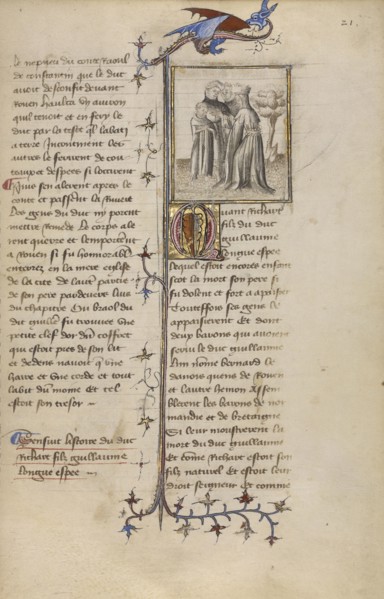 21.
le nepueu du conte Raoul
de constantin que le duc
auoit desconfit deuant
Rouen haulca un auiron
quil tenoit et en fery le
duc par la teste quil labati
a terre Incontinent les
autres le ferirent de cou
teaux et despees si locirent
Puis sen alerent apres le
conte et passerent la riuiere
Les gens du duc ny porent
mettre remede Le corps ale
rent querre et lemporterent
a Rouen si fu honnorable
enterrez en la mere eglise
de la cite de lautre partie
de son pere par deuers luis
du chapitre Ou braiol du
duc guille fu trouuee une
petite clef dor dun coffret
qui estoit pres de son lit
et dedens nauoit que une
haire et une corde et tout
labit dun moine Et tel
estoit son tresor
Censuit listoire du duc
Richart filz guillaume
longue espee
Quant Richart
filz du duc
guillaume
longue espee
lequel estoit encores enfant
scot la mort son pere si
fu dolent et fort a apaisier
Touteffois ses gens le
appaisierent Et dont
deux barons qui auoient
seruy le duc guillaume
lun nomme bernard le
danois quens de Rouen
et lautre hemon Assem
blerent les barons de nor
mandie et de bretaigne
Si leur monstrerent la
mort du duc guillaume
et come Richart estoit son
filz naturel Et estoit leur
droit seigneur Et comme